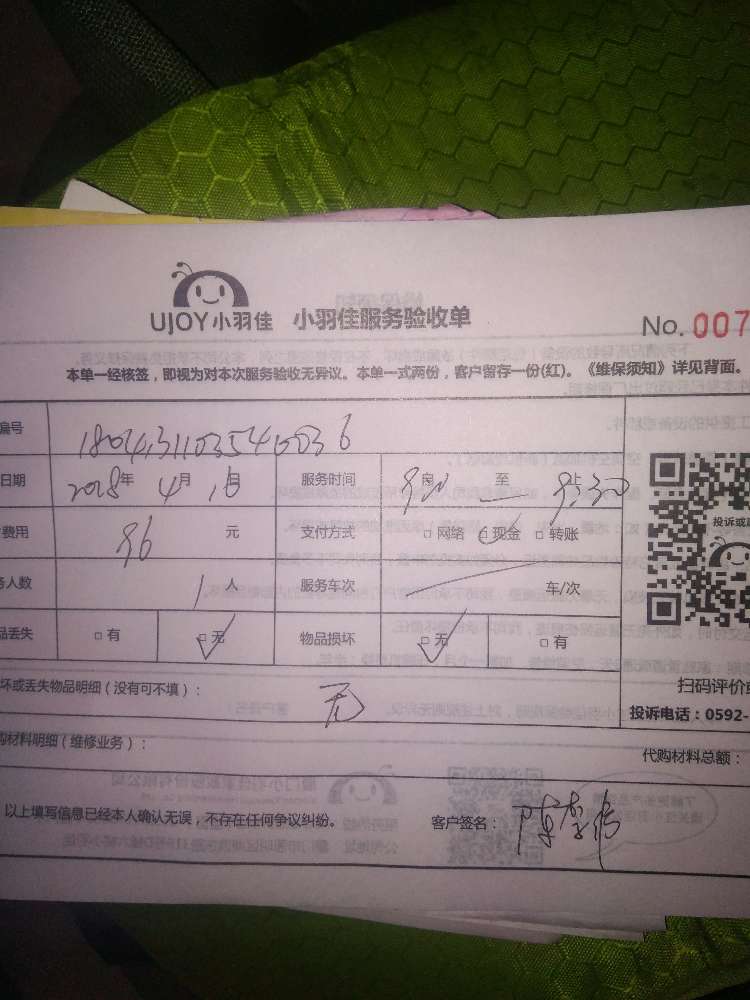 UJOY小羽佳 小羽佳服务验收单
No. 007
本单一经核签，即视为对本次服务验收无异议。本单一式两份，客户留存一份(红)。《维保须知》详见背面。
编号
日期 2018年 4月 日 服务时间 至 9:30
费用 96 元 支付方式 □网络 □现金 □转账
务人数 1 人 服务车次 车/次
品丢失 □有 □无 物品损坏 □无 □有
坏或丢失物品明细（没有可不填）： 无
购材料明细（维修业务）： 代购材料总额：
以上填写信息已经本人确认无误，不存在任何争议纠纷。 客户签名：
投诉或
扫码评价
投诉电话：0592-